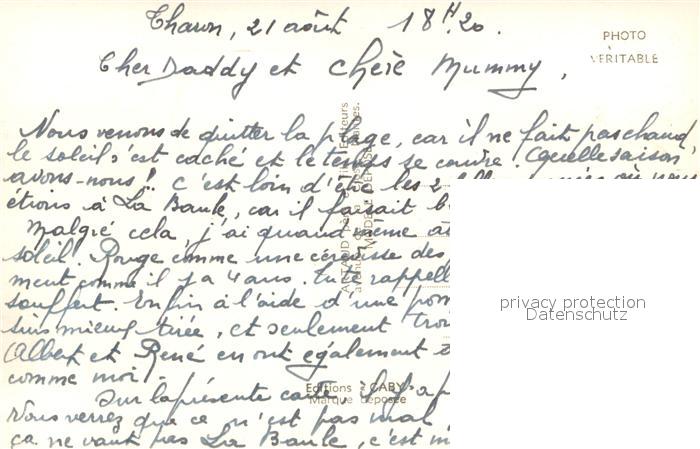 Tharon, 21 août 18H.20.
PHOTO
VÉRITABLE
Cher Daddy et chère Mummy,
Nous venons de quitter la plage, car il ne fait pas chaud,
le soleil s'est caché et le temps se couvre. Quelle saison
avons-nous! C'est loin d'être les 2
étions à La Baule, car il faisait b
Malgré cela j'ai quand même
soleil. Rouge comme une écrevisse des
ment comme il y a 4 ans. Tu te rappell
souffert. Enfin à l'aide d'une pom
suis mieux tirée, et seulement troi
Albert et René en ont également
comme moi.
Sur la présente carte, il y a p
Vous verrez que ce n'est pas mal
ça ne vaut pas La Baule, c'est m
Editions GABY
Marque déposée
privacy protection
Datenschutz